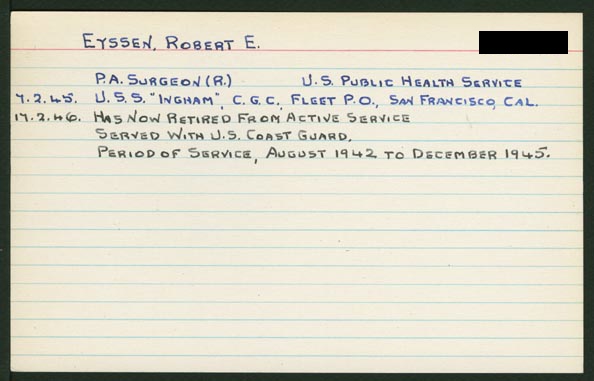 EYSSEN, ROBERT E.
P.A. SURGEON (R.) U.S. PUBLIC HEALTH SERVICE
7.2.45. U.S.S. "INGHAM", C.G.C., FLEET P.O., SAN FRANCISCO, CAL.
17.2.46. HAS NOW RETIRED FROM ACTIVE SERVICE
SERVED WITH U.S. COAST GUARD,
PERIOD OF SERVICE, AUGUST 1942 TO DECEMBER 1945.